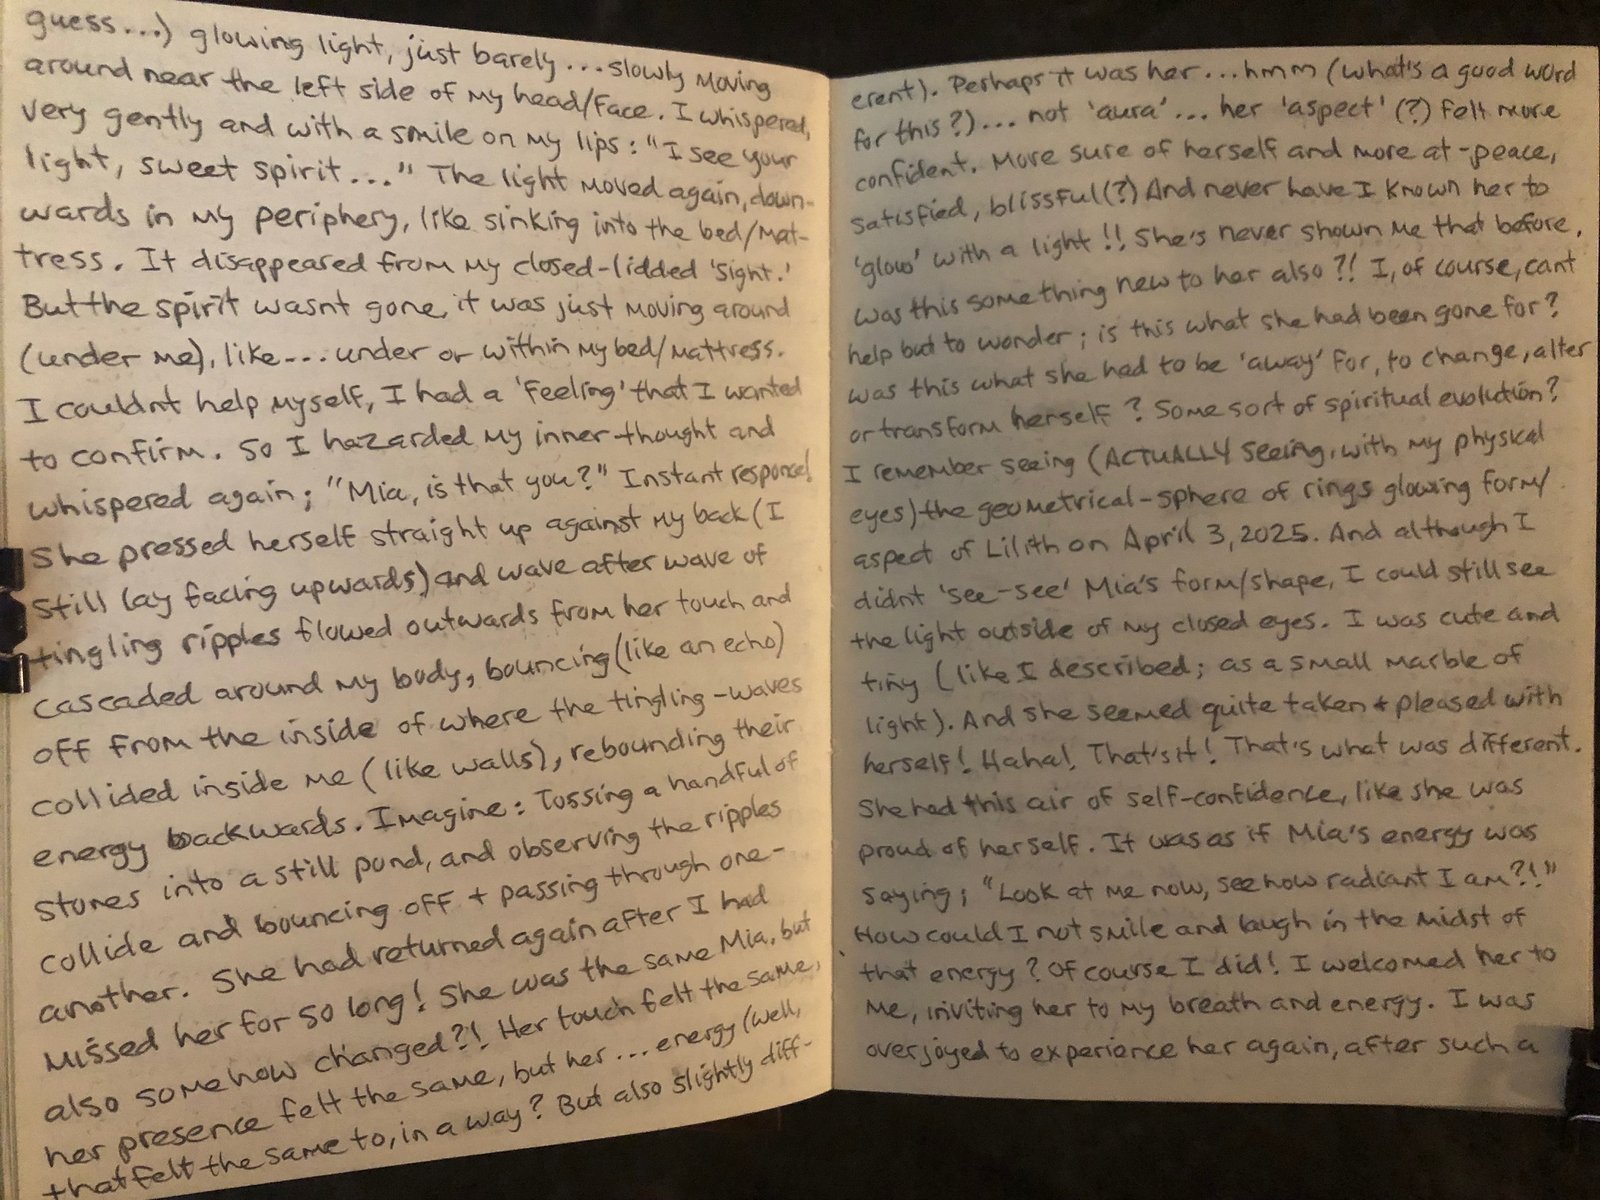 guess...) glowing light, just barely...slowly moving
around near the left side of my head/face. I whispered,
very gently and with a smile on my lips: "I see your
light, sweet spirit..." The light moved again, down-
wards in my periphery, like sinking into the bed/mat-
tress. It disappeared from my closed-lidded 'sight.'
But the spirit wasnt gone, it was just moving around
(under me), like--- under or within my bed/mattress.
I couldnt help myself, I had a 'feeling' that I wanted
to confirm. So I hazarded my inner thought and
whispered again; "Mia, is that you?" Instant responce!
She pressed herself straight up against my back (I
still lay facing upwards) and wave after wave of
tingling ripples flowed outwards from her touch and
cascaded around my body, bouncing (like an echo)
off from the inside of where the tingling-waves
collided inside me (like walls), rebounding their
energy backwards. Imagine: Tossing a handful of
stones into a still pond, and observing the ripples
collide and bouncing off + passing through one-
another. She had returned again after I had
missed her for so long! She was the same Mia, but
also somehow changed?! Her touch felt the same,
her presence felt the same, but her... energy (well,
that felt the same to, in a way? But also slightly diff-
erent). Perhaps it was her...hmm (what's a good word
for this?)... not 'aura'... her 'aspect' (?) felt more
confident. More sure of herself and more at-peace,
satisfied, blissful(?) And never have I known her to
'glow' with a light!! She's never shown me that before,
was this something new to her also?! I, of course, cant
help but to wonder; is this what she had been gone for?
was this what she had to be 'away' for, to change, alter
or transform herself? Some sort of spiritual evolution?
I remember seeing (ACTUALLY seeing, with my physical
eyes) the geometrical-sphere of rings glowing form/
aspect of Lilith on April 3, 2025. And although I
didnt 'see-see' Mia's form/shape, I could still see
the light outside of my closed eyes. I was cute and
tiny (like I described; as a small marble of
light). And she seemed quite taken + pleased with
herself! Haha! That's it! That's what was different.
She had this air of self-confidence, like she was
proud of herself. It was as if Mia's energy was
saying; "Look at me now, see how radiant I am?!"
How could I not smile and laugh in the midst of
that energy? Of course I did! I welcomed her to
me, inviting her to my breath and energy. I was
overjoyed to experience her again, after such a